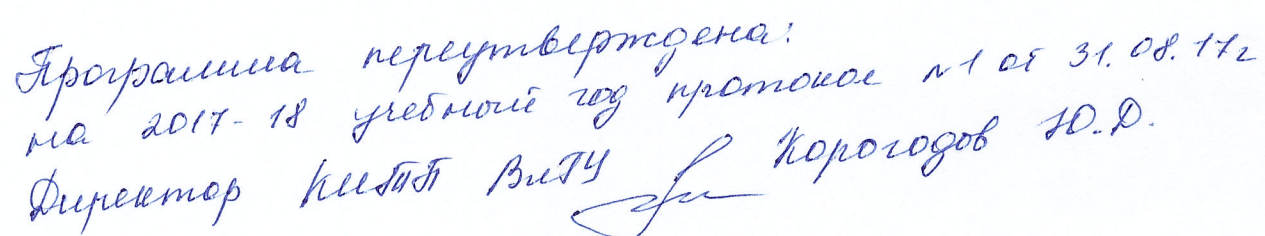 Программа переутверждена:
на 2017-18 учебный год протокол №1 от 31.08.17г
Директор КИТП ВлГУ Корогодов Ю.Д.